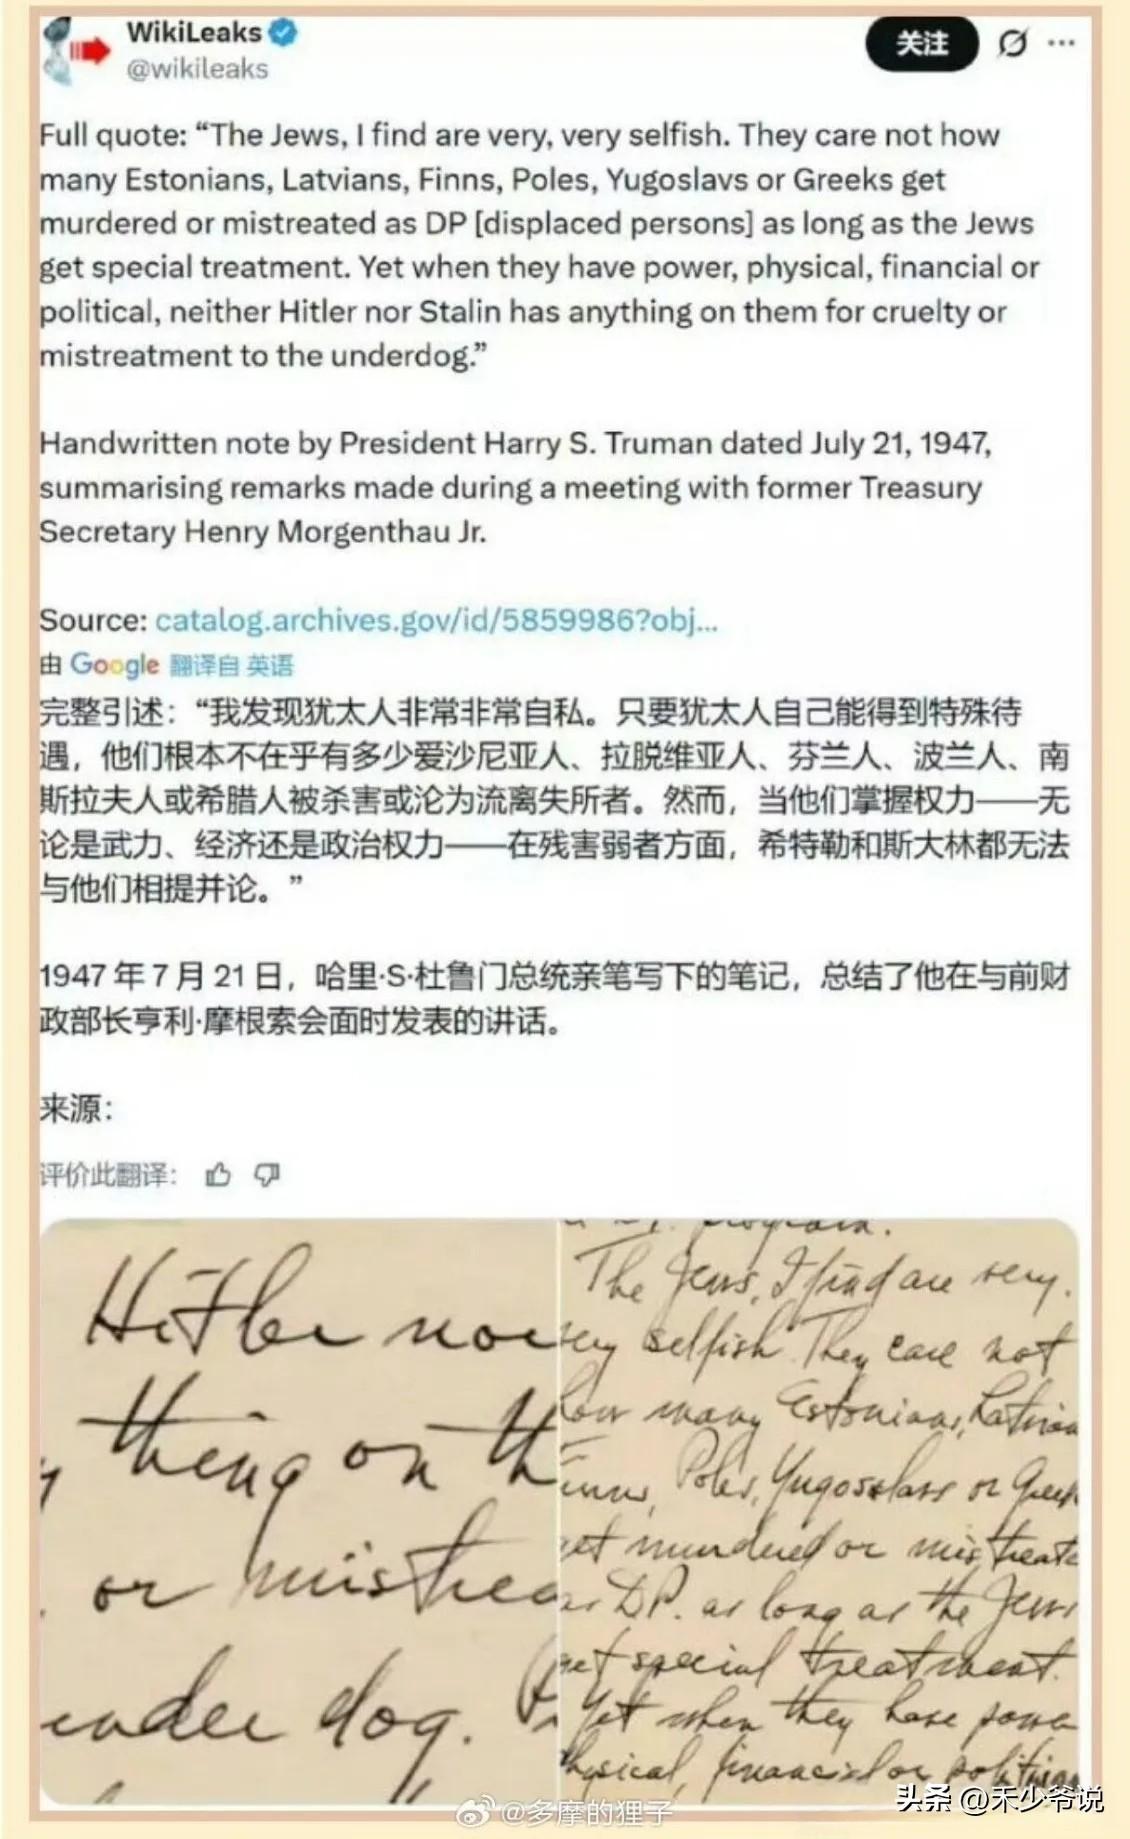 WikiLeaks
@wikileaks
关注
Full quote: “The Jews, I find are very, very selfish. They care not how
many Estonians, Latvians, Finns, Poles, Yugoslavs or Greeks get
murdered or mistreated as DP [displaced persons] as long as the Jews
get special treatment. Yet when they have power, physical, financial or
political, neither Hitler nor Stalin has anything on them for cruelty or
mistreatment to the underdog.”
Handwritten note by President Harry S. Truman dated July 21, 1947,
summarising remarks made during a meeting with former Treasury
Secretary Henry Morgenthau Jr.
Source: catalog.archives.gov/id/5859986?obj...
由 Google 翻译自 英语
完整引述：“我发现犹太人非常非常自私。只要犹太人自己能得到特殊待
遇，他们根本不在乎有多少爱沙尼亚人、拉脱维亚人、芬兰人、波兰人、南
斯拉夫人或希腊人被杀害或沦为流离失所者。然而，当他们掌握权力——无
论是武力、经济还是政治权力——在残害弱者方面，希特勒和斯大林都无法
与他们相提并论。”
1947 年 7 月 21 日，哈里·S·杜鲁门总统亲笔写下的笔记，总结了他在与前财
政部长亨利·摩根索会面时发表的讲话。
来源：
评价此翻译：
Hitler nor
thing on th
or mistrea
under dog.
program.
The Jews, I find are very,
very selfish. They care not
how many Estonians, Latvian
Finns, Poles, Yugoslavs or Greek
get murdered or mistreate
as D.P. as long as the Jews
get special treatment.
Yet when they have power
physical, financial or political
@多摩的狸子
头条 @禾少爷说